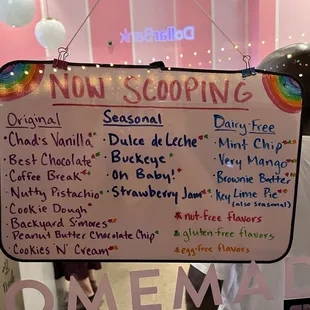 DollarBank
Now Scooping
Original
• Chad's Vanilla
• Best Chocolate
• Coffee Break
• Nutty Pistachio
• Cookie Dough
• Backyard S'mores
• Peanut Butter Chocolate Chip
• Cookies 'N' Cream
Seasonal
• Dulce de Leche
• Buckeye
• Oh Baby!
• Strawberry Jam
Dairy-Free
• Mint Chip
• Very Mango
• Brownie Batter
• Key Lime Pie
(also seasonal)
* nut-free flavors
* gluten-free flavors
* egg-free flavors
OMEMAD